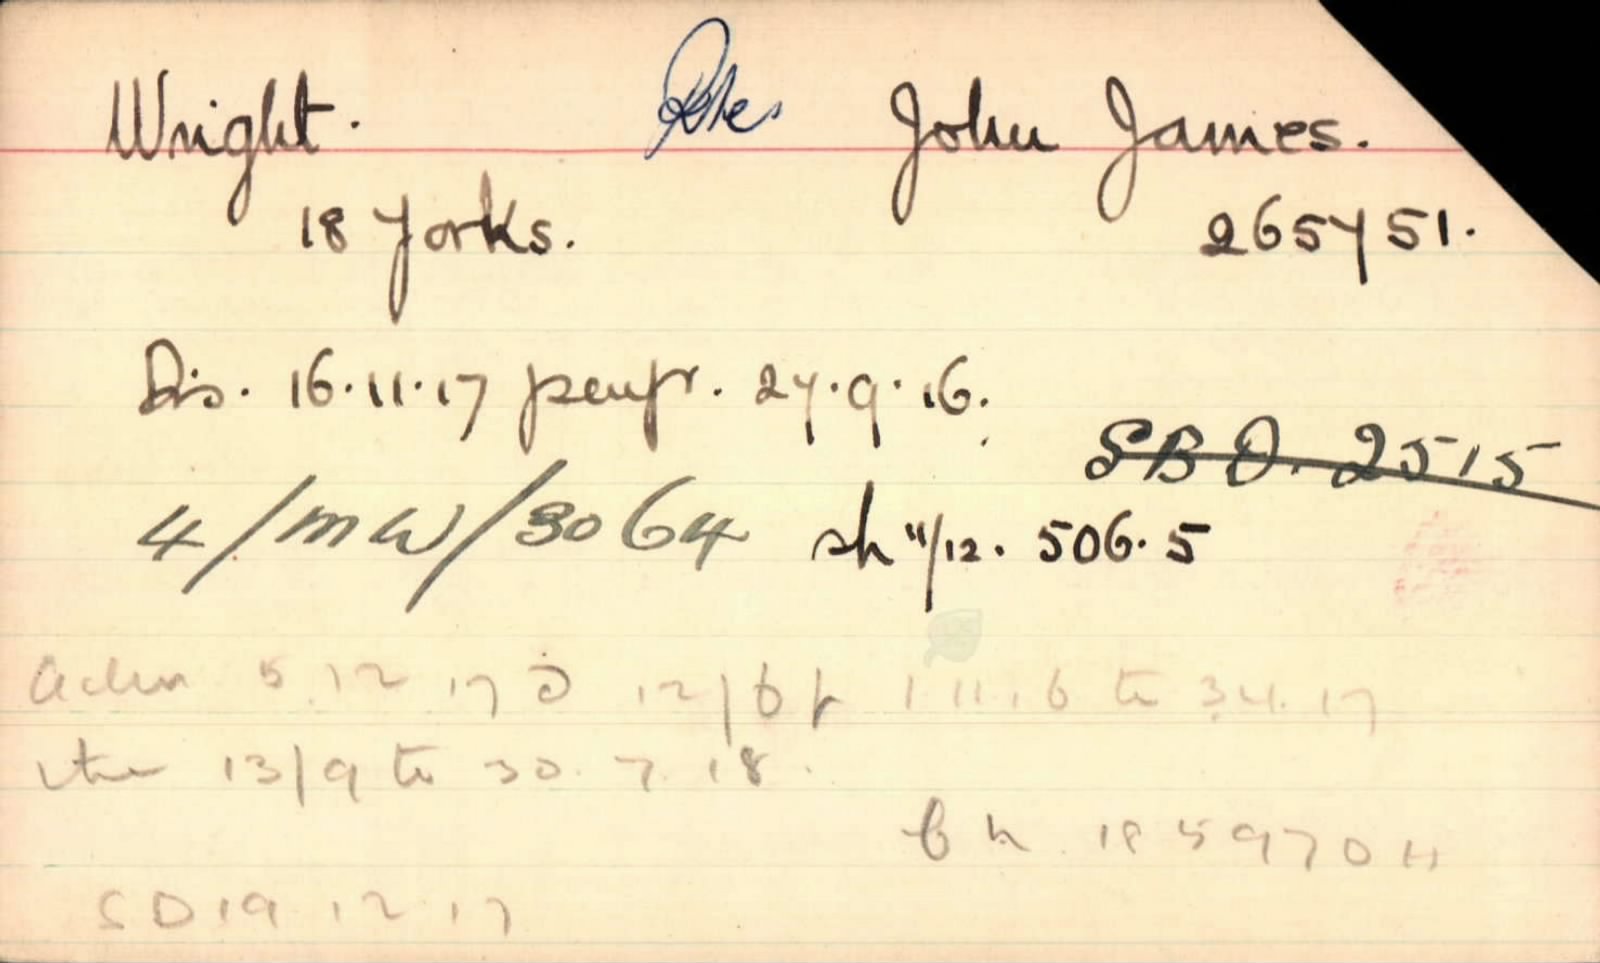 Wright. Pte John James.
18 Yorks. 265751.
Dis. 16.11.17 penfr. 27.9.16.
SBO. 2515
4/MW/3064 sh 11/12. 506.5
5.12.17 12/6 fr 1.11.16 to 3.4.17
13/9 to 30.7.18.
185970H
SD 19 12 17